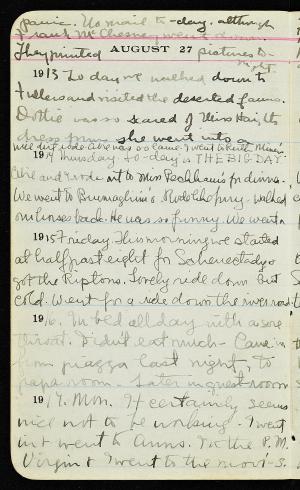 panic. No mail to-day, although
Frank McChesney went down.
They printed pictures to-
night.
AUGUST 27
1913 To day we walked down to
Fullers and visited the deserted farms.
Dottie was so scared of Miss Haight's
dress form she went into a
1914 Thursday. To-day is THE BIG DAY.
and I rode out to Miss Peckham's for dinner.
We went to Brumaghim's. Rudolph walked
on horses back. He was so funny. We went
1915 Friday. This morning we started
at half past eight for Schenectady
got the Riptons. Lovely ride down but
cold. Went for a ride down the river road
1916. In bed all day with a sore
throat. Didn't eat much. Came in
from piazza last night, to
papa room. Later in guest room
1917. Mon. It certainly seems
nice not to be working. I went
in + went to Anns. In the P.M.
Virgin + I went to the movi-s.